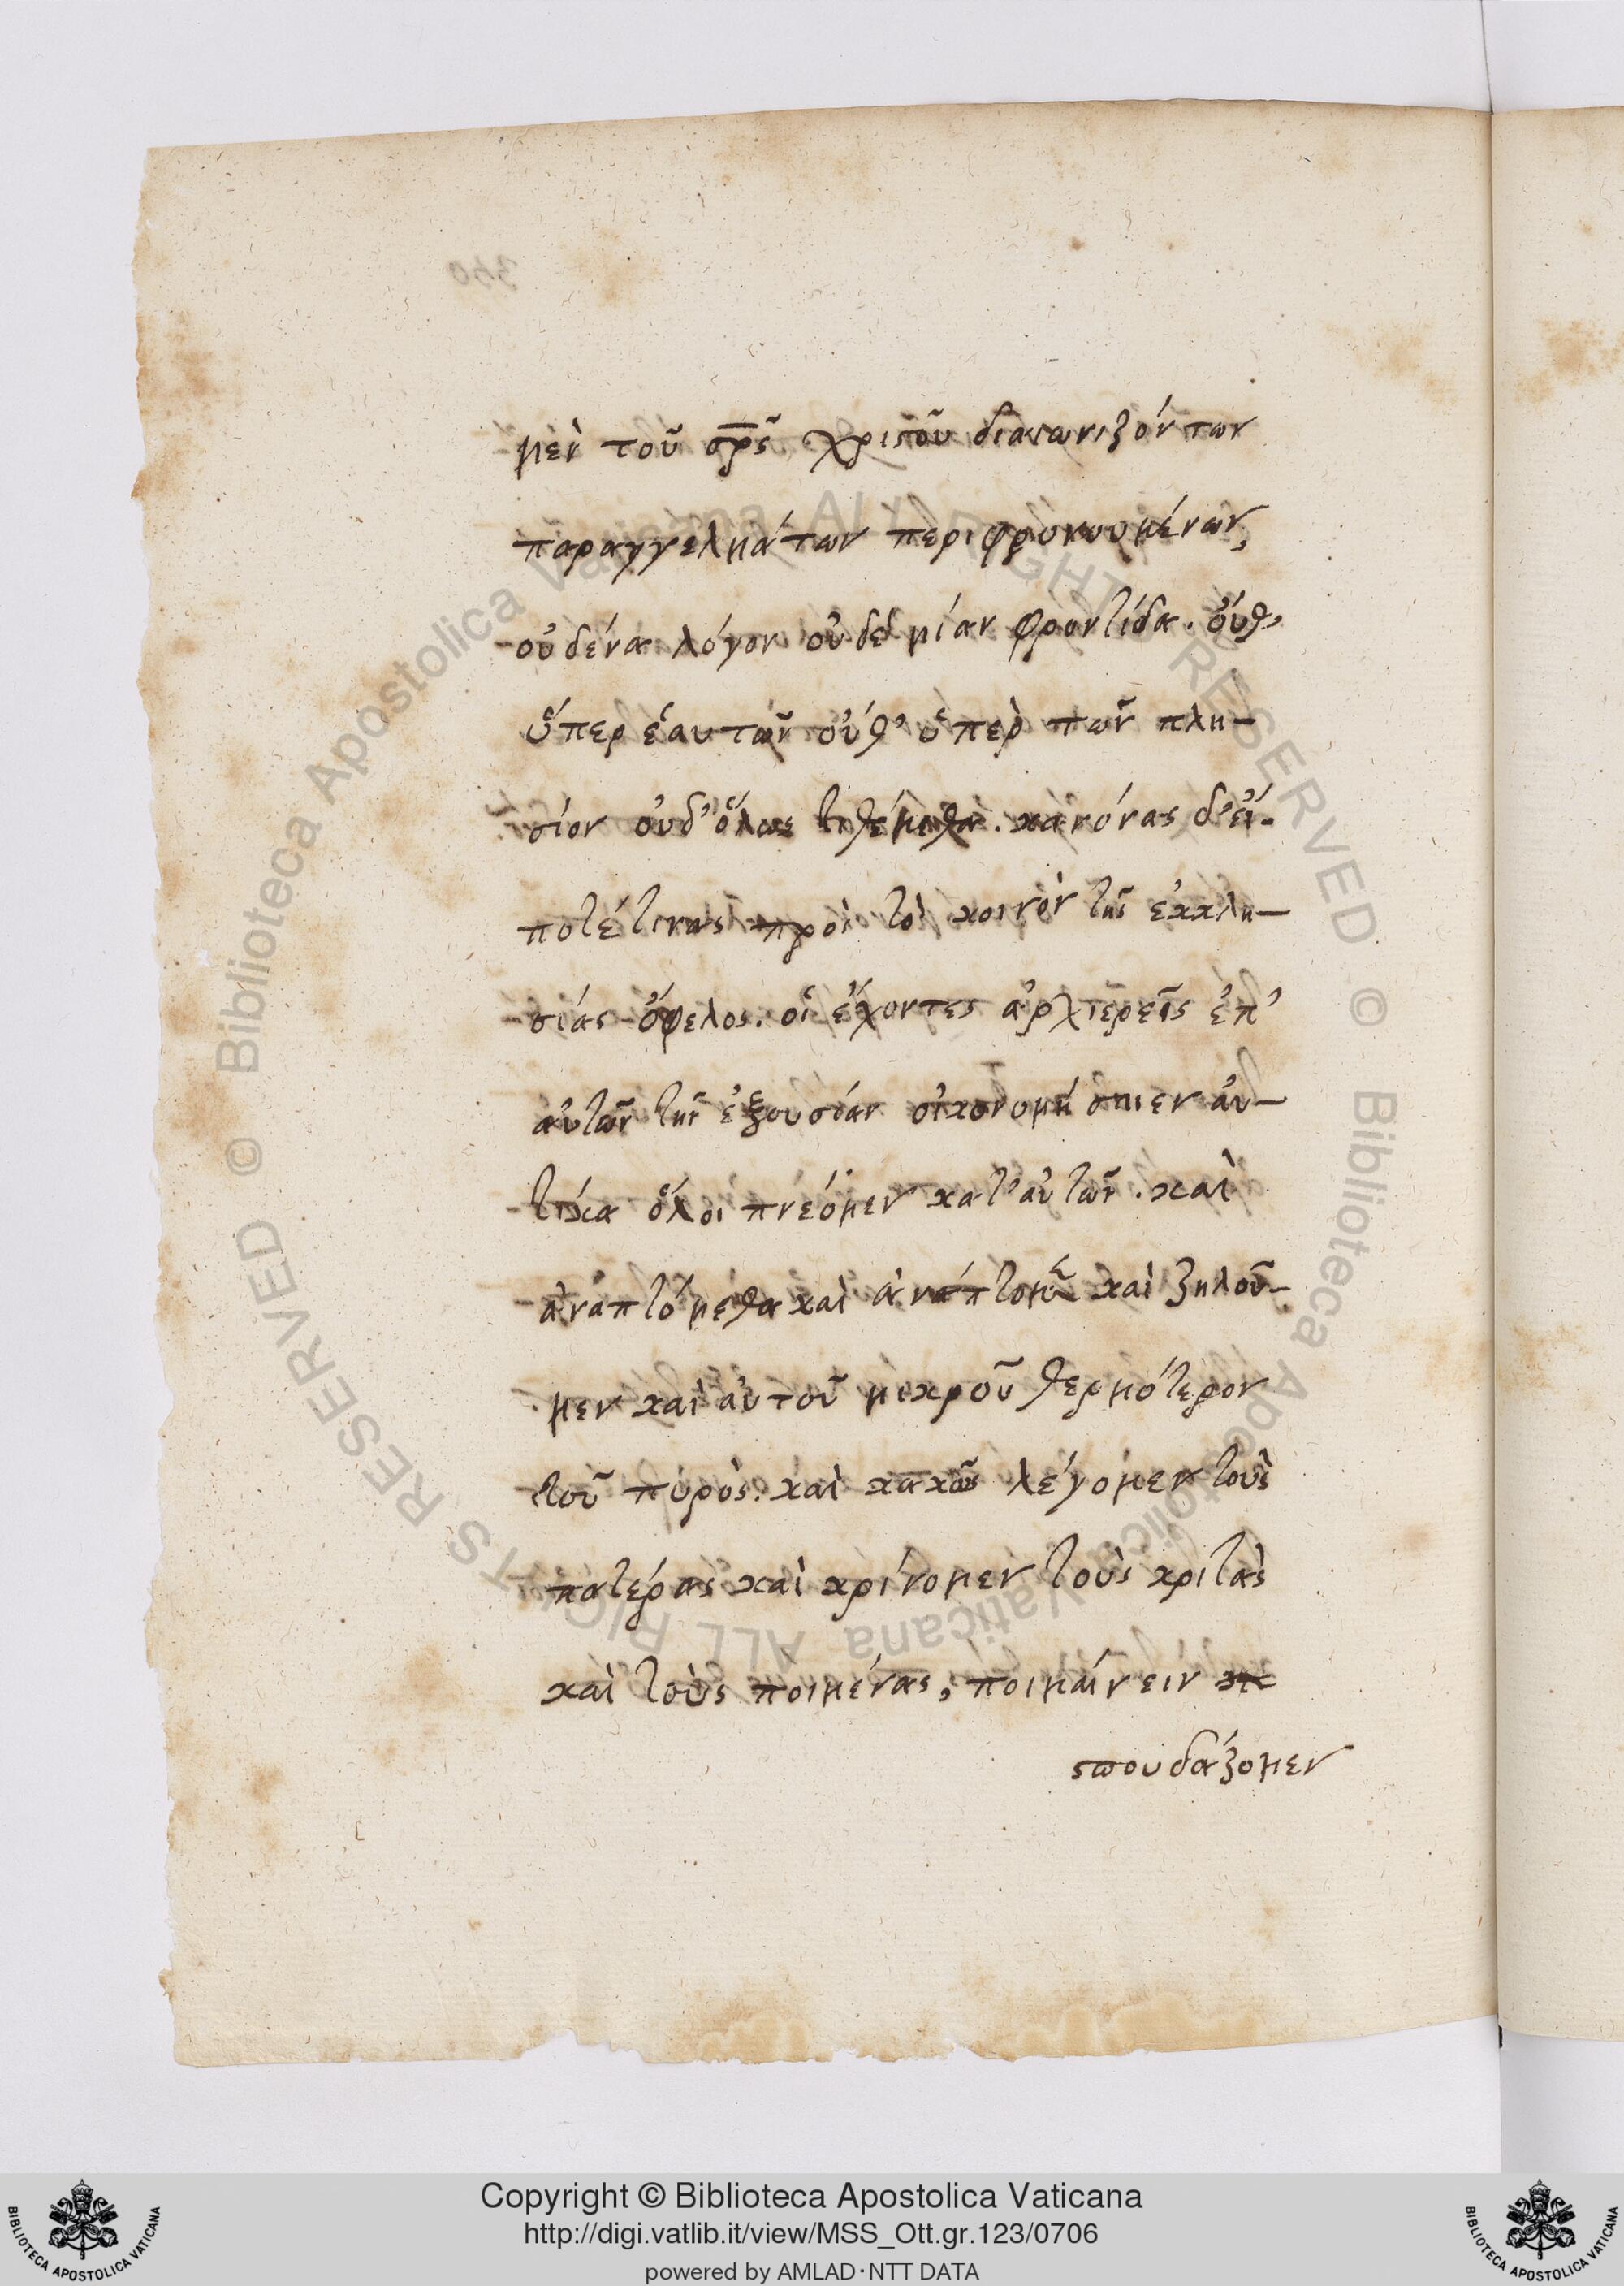 μὲν τοῦ σρ̅ς̃ χριστοῦ διαιωνιζόντων
παραγγελμάτων περιφρονουμένων,
οὐδένα λόγον οὐδὲ μίαν φροντίδα. οὔθ'
ὕπερ ἑαυτῶν οὔθ' ὑπὲρ τῶν πλη-
σίον οὐδ' ὅλως τιθέμεθα. κανόνας δ' εἴ-
ποτέ τινας πρὸς τὸ κοινὸν τῆς ἐκκλη-
σίας ὄφελος. οἱ ἔχοντες ἀρχιερεῖς ἐπ'
αὐτῶν τὴν ἐξουσίαν οἰκονομή σαιεν ἀυ-
τίκα ὅλοι πνέομεν κατ' αὐτῶν. καὶ
ἀναπτόμεθα καὶ καὶ ζηλοῦ-
μεν καὶ αὐτοῦ μικροῦ θερμότερον
τοῦ πυρὸς. καὶ κακῶς λέγομεν τοὺς
πατέρας καὶ κρίνομεν τοὺς κριτὰς
καὶ τοὺς ποιμένας, ποιμαίνειν
σπουδάζομεν
340
© Biblioteca Apostolica Vaticana ALL RIGHTS RESERVED © Biblioteca Apostolica Vaticana ALL RIGHTS RESERVED
BIBLIOTECA APOSTOLICA VATICANA
Copyright © Biblioteca Apostolica Vaticana
http://digi.vatlib.it/view/MSS_Ott.gr.123/0706
powered by AMLAD·NTT DATA
BIBLIOTECA APOSTOLICA VATICANA